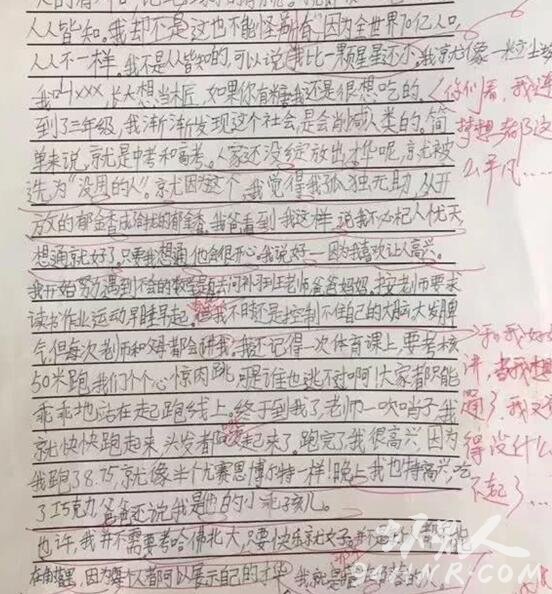 人人皆知。我却不是这也不能怪斯宾,因为全世界70亿人口,
人人不一样。我不是人皆知的,可以说我比一颗星星还小,我就像一粒尘
我叫xxx,长大想当木匠,如果你有糖我还是很想吃的。
到了三年级,我渐渐发现这个社会,是会削减人类的。简
单来说,就是中考和高考。人家还没绽放出才华呢,就被
选为“没用的人”。就因为这个,我觉得我孤独无助,从开
放的郁金香成给挂的郁金香。我爸看到我这样,说我不必杞人忧天
想通就好了。只要我想通他会很开心。我说好—因为我喜欢让人高兴。
我开始努力,遇到不会的数学题去问补习班老师爸爸妈妈。按老师要求
读书作业运动早睡早起。但我不时还是控制不住自己的大脑大发脾
气,但每次老师和父母都会讲我。我还记得一次体育课上,要考核
50米跑,我们个个心惊肉跳,可是谁也逃不过啊!大家都只能
乖乖地站在起跑线上。终于到我了,老师一吹哨子,我
就快快跑起来,头发都起来了。跑完了我很高兴,因为
我跑了8.75,就像半个尤赛恩博尔特一样!晚上我也特高兴,吃
了巧克力,爸爸还说我是他的小乖孩儿。
也许,我并不需要考哈佛北大,只要快乐就好。并不是
在角落里,因为每个人都可以展示自己的才华。我就是
你们看,我连
梦想都这
么平凡……
和我好好
讲,当我想通
得没什么
了不起了……
虾男人
94HNR.COM